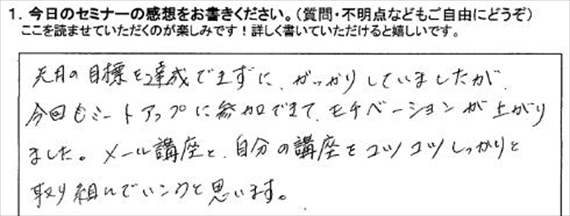 1. 今日のセミナーの感想をお書きください。（質問・不明点などもご自由にどうぞ）
ここを読ませていただくのが楽しみです！詳しく書いていただけると嬉しいです。
先月の目標を達成できずに、がっかりしていましたが、
今回もミートアップに参加できて、モチベーションが上がり
ました。メール講座と、自分の講座をコツコツしっかりと
取り組んでいこうと思います。